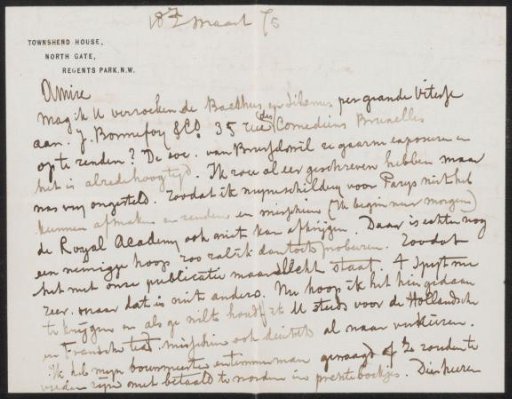 Maart 75
TOWNSHEND HOUSE,
NORTH GATE,
REGENTS PARK. N.W.
Amice
Mag ik U verzoeken de Bacchus en Silenus per grande Vitesse
aan. J. Bonnefoy & Co. 35 rue des Comediens Bruxelles
op te zenden? De soc. van Brussel wil ze gaarne exposeren en
het is alrede hoog tijd. Ik zou al eer geschreven hebben maar
was zeer ongesteld. zoodat ik mijn schilderij voor Parys niet heb
kunnen afmaken en zenden en misschien (Ik begin maar morgen)
de Royal Academy ook niet kan afkrijgen. Daar is echter nog
een weinigje hoop zoo zal ik dan toch proberen. Zoodat
het met onze publicatie maar slecht staat. 't spyt me
zeer. maar dat is niet anders. Nu hoop ik het hier gedaan
te krijgen en als ge wilt houd ik U steeds voor de Hollandsche
en Fransche misschien ook duitsch al naar verkiezen.
Ik heb mijn bouwmeester en timmerman gevraagd of ze zouden te
vreden zijn met betaald te worden in Dies heeren